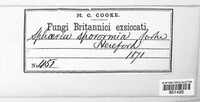 M. C. COOKE.
Fungi Britannici exsiccati,
Sphaeria sporormia Cooke
Hereford
1871
No. 481.